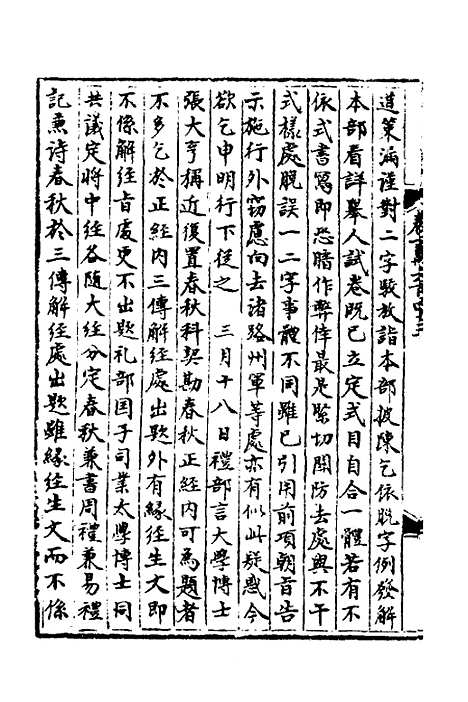 道策漏謹對二字駮放詣本部披陳乞依脱字例發解
本部看詳舉人試卷既已立定式目自合一體若有不
依式書寫即恐暗作弊倖最是緊切關防去處與不干
式樣處脱誤一二字事體不同雖已引用前項朝旨告
示施行外竊慮向去諸路州軍等處亦有似此疑惑今
欲乞申明行下從之　三月十八日禮部言大學博士
張大亨稱近復置春秋科契勘春秋正經内可為題者
不多乞於正經内三傳解經處出題外有緣經生文即
不係解經旨處更不出題礼部国子司業太學博士同
共議定將中經各随大經分定春秋兼書周禮兼易禮
記兼诗春秋於三傳解經處出題雖緣經生文而不係